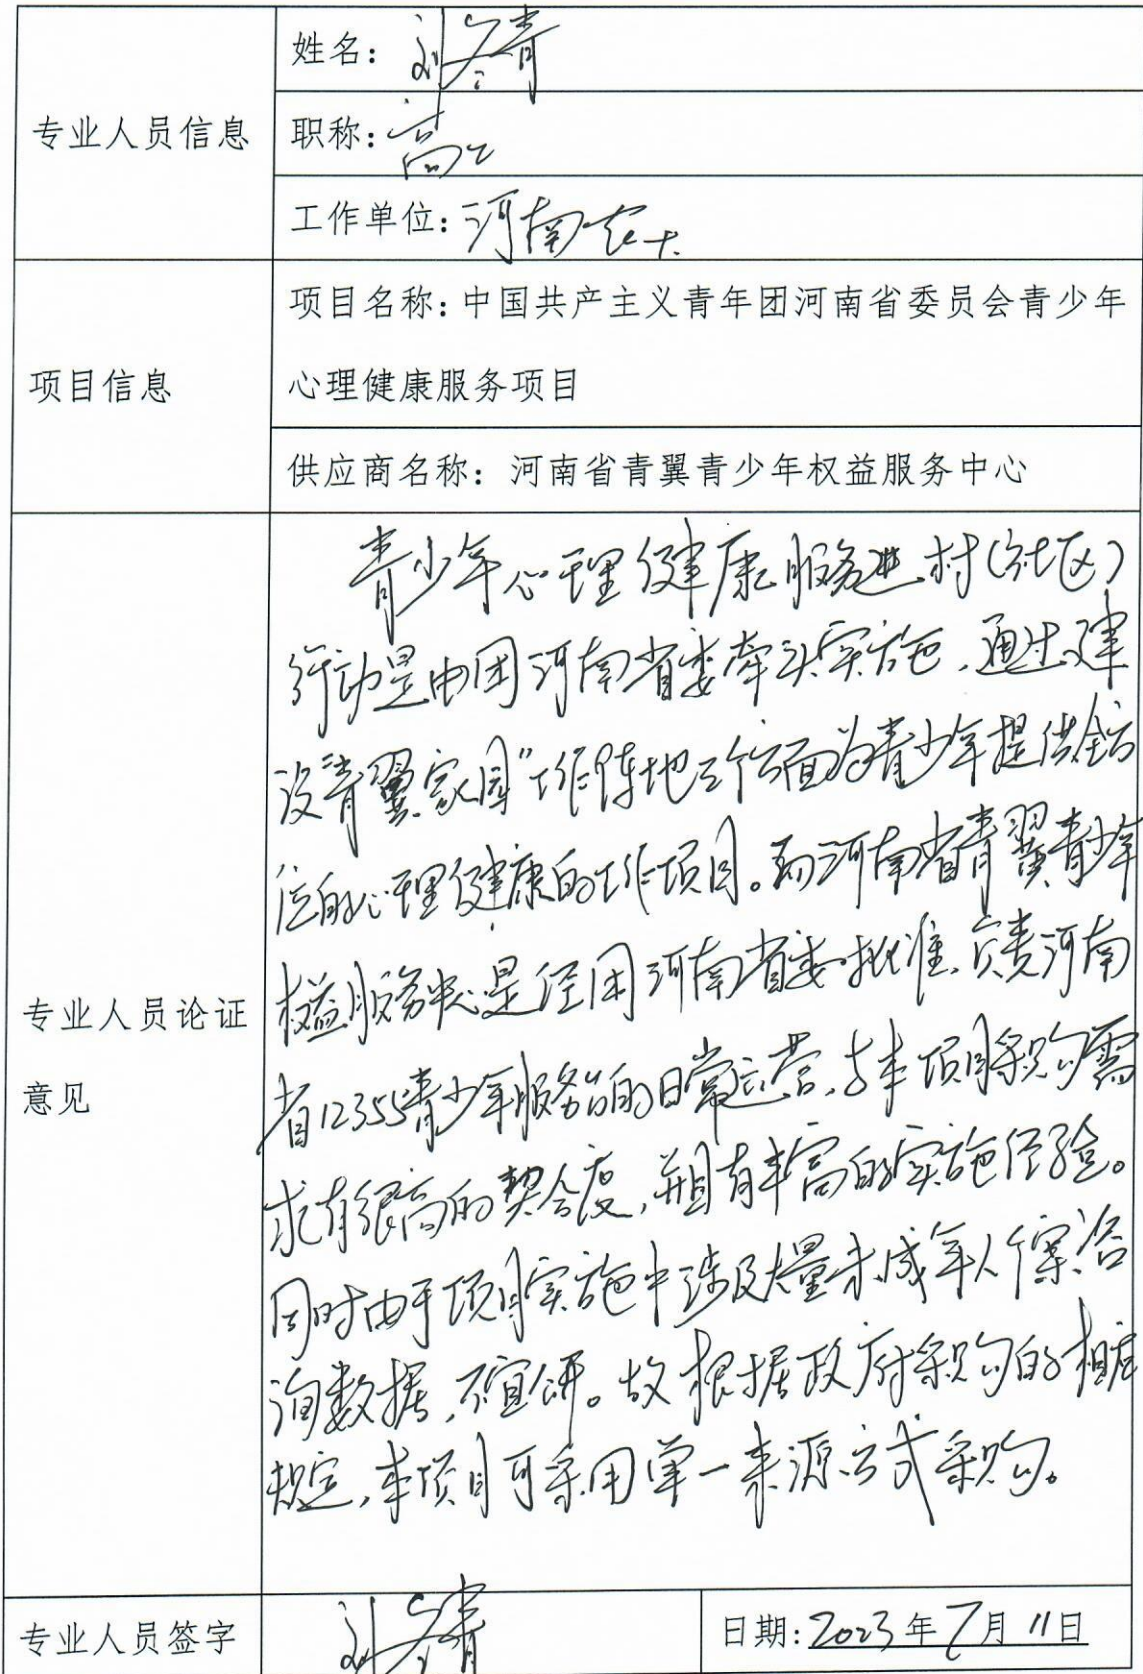 专业人员信息
姓名：刘青
职称：高工
工作单位：河南农大
项目信息
项目名称：中国共产主义青年团河南省委员会青少年
心理健康服务项目
供应商名称：河南省青翼青少年权益服务中心
专业人员论证
意见
青少年心理健康服务进村（社区）
行动是由团河南省委牵头实施，通过建
设“青翼家园”工作阵地等方面为青少年提供全方
位的心理健康的工作项目。而河南省青翼青少年
权益服务中心是经团河南省委批准、负责河南
省12355青少年服务台的日常运营，与本项目采购需
求有很高的契合度，并且有丰富的实施经验。
同时由于项目实施中涉及大量未成年人个案咨
询数据，不宜公开。故根据政府采购的相关
规定，本项目可采用单一来源方式采购。
专业人员签字
刘青
日期：2023年7月11日